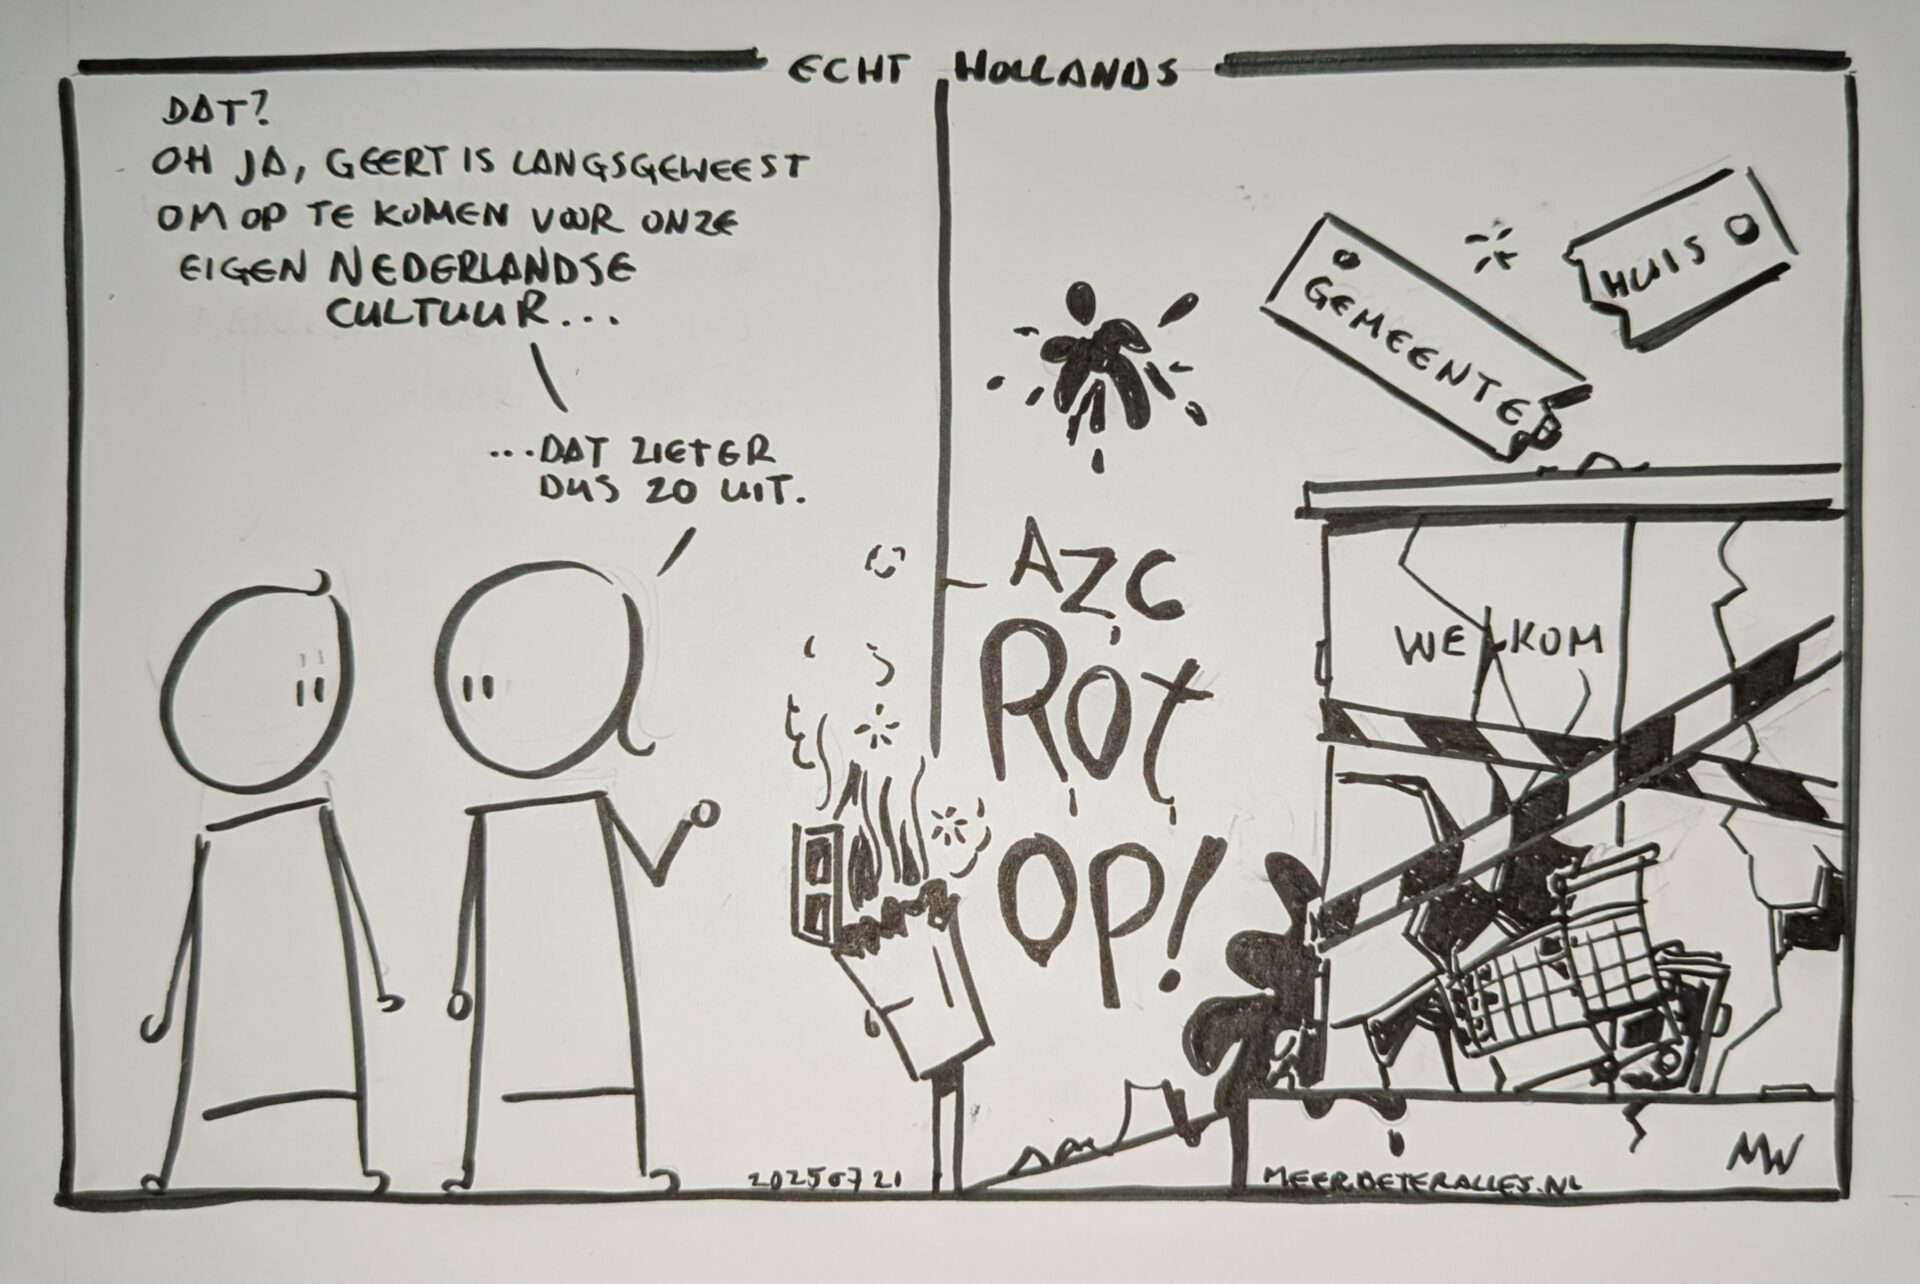 ECHT HOLLANDS
DAT?
OH JA, GEERT IS LANGSGEWEEST
OM OP TE KOMEN VOOR ONZE
EIGEN NEDERLANDSE
CULTUUR...
...DAT ZIET ER
DUS ZO UIT.
GEMEENTE
HUIS
AZC
ROT
OP!
WELKOM
20250721
MEERBETERALLES.NL
MW